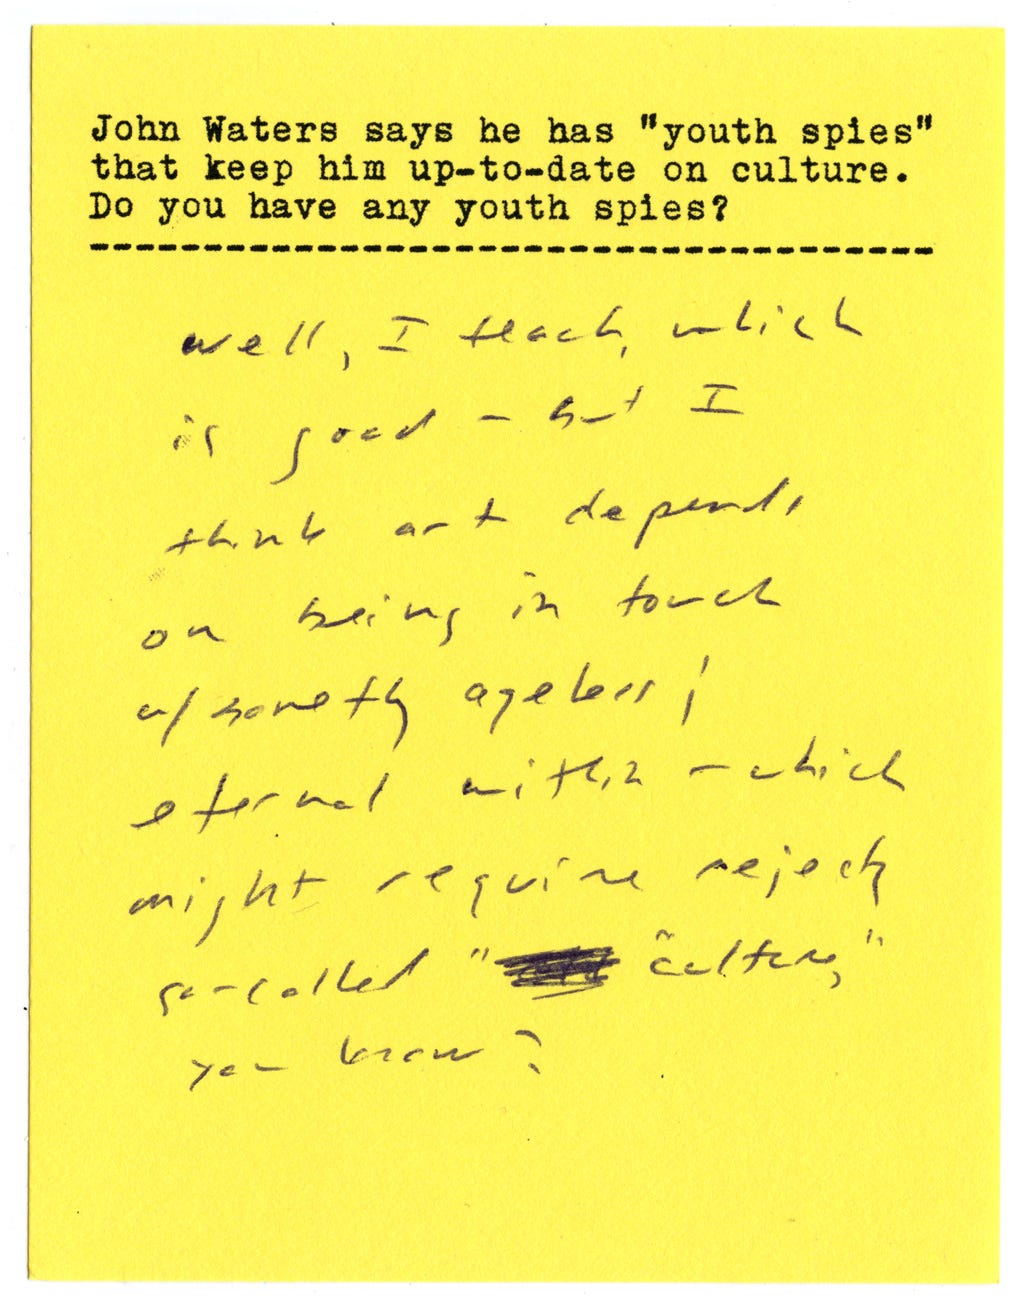 John Waters says he has "youth spies"
that keep him up-to-date on culture.
Do you have any youth spies?
well, I teach, which
is good – but I
think art depends
on being in touch
w/ somethg ageless /
eternal within – which
might require rejectg
so-called " "culture,"
you know?